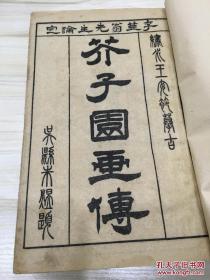 李笠翁先生論定
繡水王安節摹古
芥子園画傳
吳縣朱題